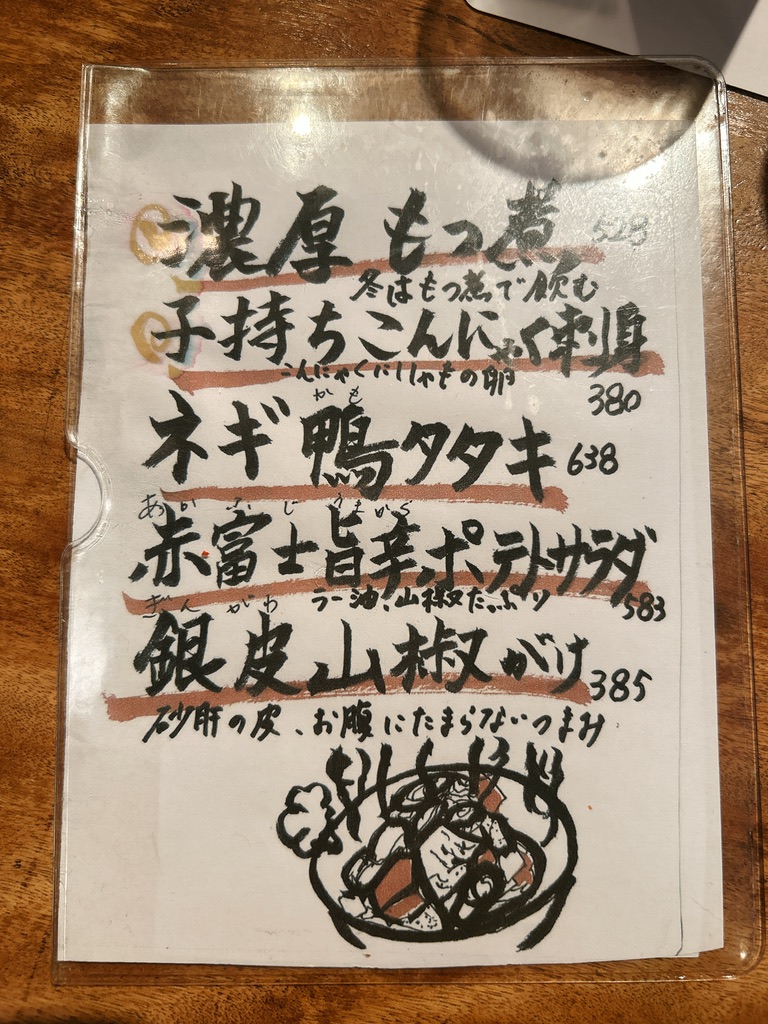 濃厚もつ煮 528
冬はもつ煮で飲む
子持ちこんにゃく刺身
こんにゃくにししゃもの卵
380
かも
ネギ鴨タタキ 638
あかふじうまから
赤富士旨辛ポテトサラダ
ラー油、山椒たっぷり 583
ぎんがわ
銀皮山椒がけ 385
砂肝の皮、お腹にたまらないつまみ